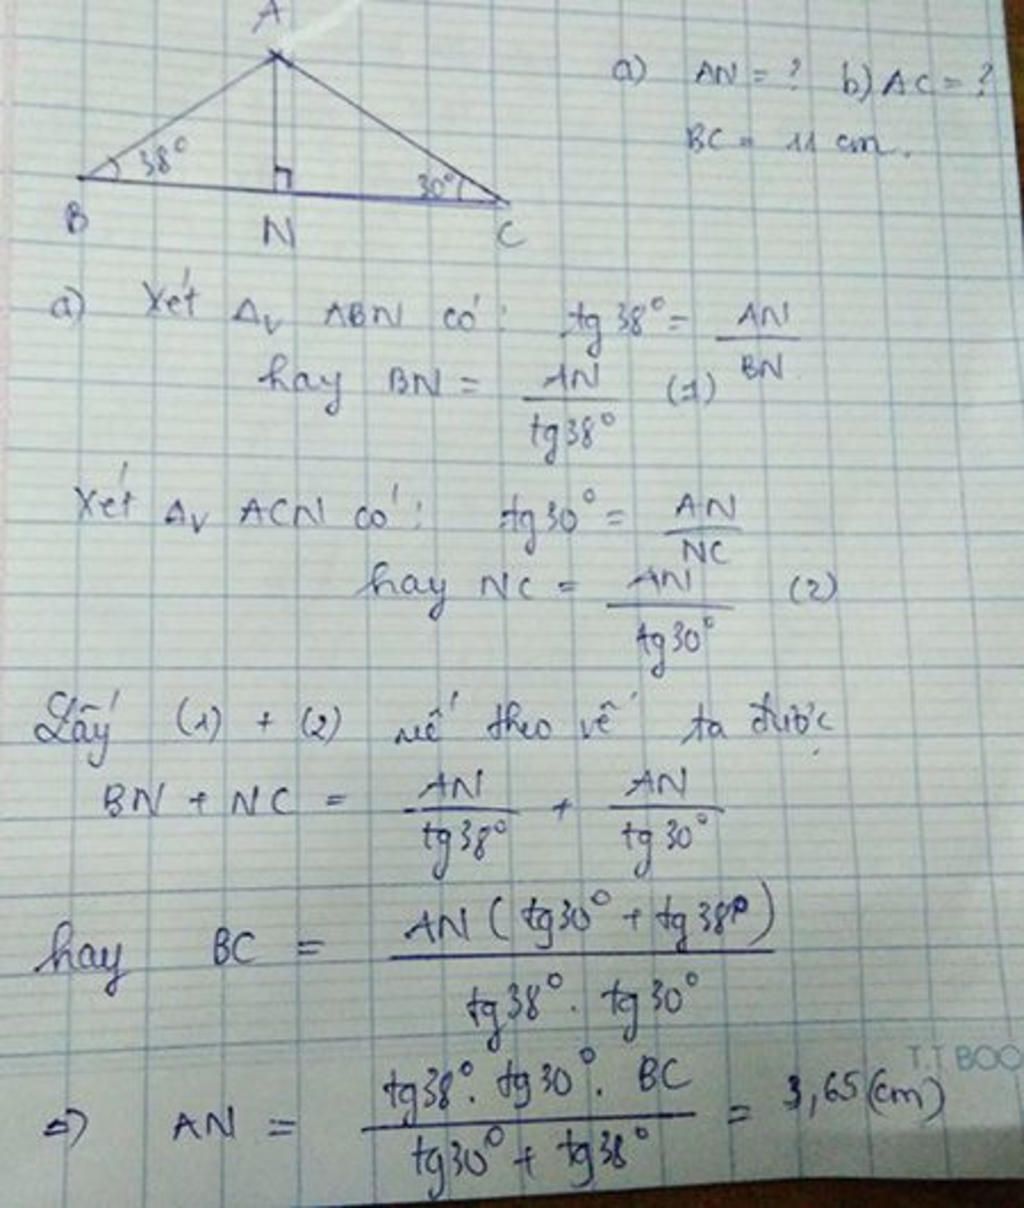 A
a) AN = ? b) AC = ?
BC = 11 cm.
38°
30°
B
N
C
a) Xét Δv ABN có: tg38° = AN/BN
hay BN = AN/tg38° (1)
Xét Δv ACN có: tg30° = AN/NC
hay NC = AN/tg30° (2)
Lấy (1) + (2) vế theo vế ta được
BN + NC = AN/tg38° + AN/tg30°
hay BC = AN(tg30° + tg38°)/tg38°.tg30°
T.T BOO
=> AN = tg38°.tg30°.BC/tg30° + tg38° = 3,65 (cm)